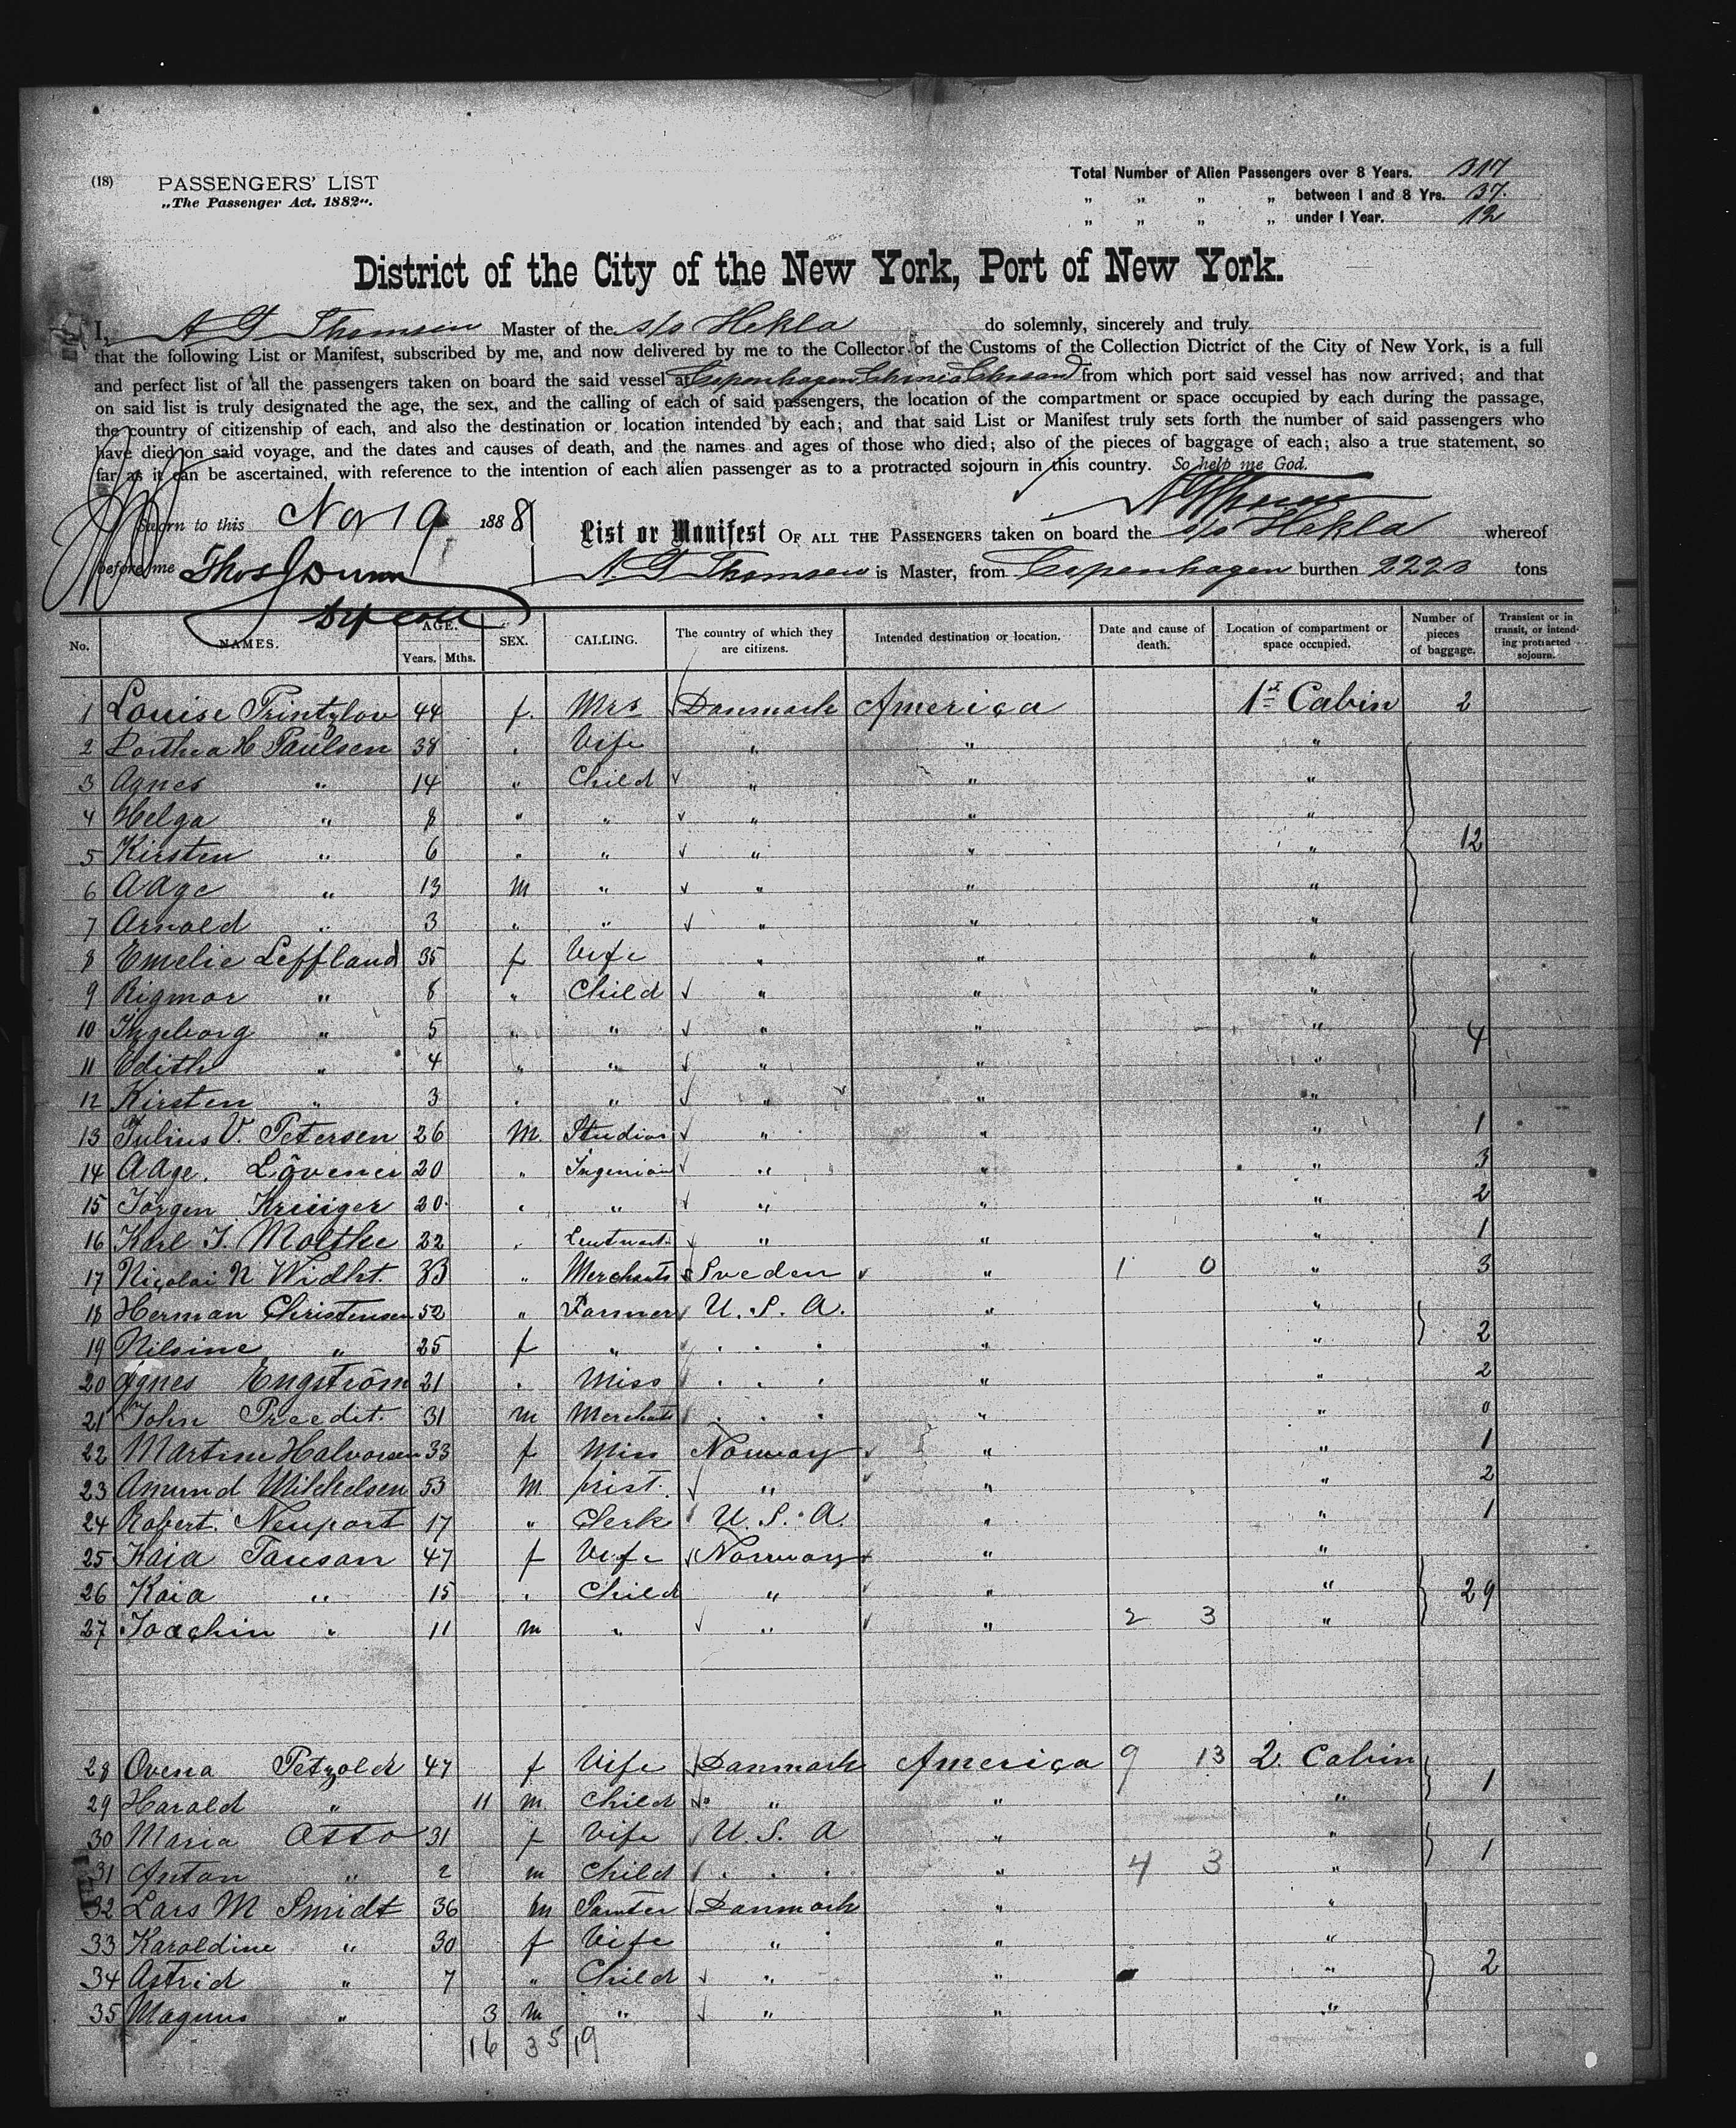 (18) PASSENGERS' LIST
„The Passenger Act, 1882".
Total Number of Alien Passengers over 8 Years. 317
„ „ „ „ between 1 and 8 Yrs. 37.
„ „ „ „ under 1 Year. 12
District of the City of the New York, Port of New York.
I, A G Thomsen Master of the s/s Hekla do solemnly, sincerely and truly
that the following List or Manifest, subscribed by me, and now delivered by me to the Collector of the Customs of the Collection Dictrict of the City of New York, is a full
and perfect list of all the passengers taken on board the said vessel at Copenhagen from which port said vessel has now arrived; and that
on said list is truly designated the age, the sex, and the calling of each of said passengers, the location of the compartment or space occupied by each during the passage,
the country of citizenship of each, and also the destination or location intended by each; and that said List or Manifest truly sets forth the number of said passengers who
have died on said voyage, and the dates and causes of death, and the names and ages of those who died; also of the pieces of baggage of each; also a true statement, so
far as it can be ascertained, with reference to the intention of each alien passenger as to a protracted sojourn in this country. So help me God.
Sworn to this Nov 9 1888
List or Manifest OF ALL THE PASSENGERS taken on board the s/s Hekla whereof
before me Thos J Dunn
A. G Thomsen is Master, from Copenhagen burthen 2223 tons
Dep Coll
No. NAMES. AGE. Years. Mths. SEX. CALLING. The country of which they are citizens. Intended destination or location. Date and cause of death. Location of compartment or space occupied. Number of pieces of baggage. Transient or in transit, or intending protracted sojourn.
1 Louise Printzlow 44 f. Mrs Danmark America 1st Cabin 2
2 Dorthea H Paulsen 38 „ Vife „ „ „
3 Agnes „ 14 „ Child „ „ „
4 Helga „ 8 „ „ „ „ „
5 Kirsten „ 6 „ „ „ „ „ 12
6 Aage „ 13 m „ „ „ „
7 Arnold „ 3 „ „ „ „ „
8 Emelie Leffland 35 f Vife „ „ „
9 Rigmor „ 8 „ Child „ „ „
10 Ingeborg „ 5 „ „ „ „ „ 4
11 Edith „ 4 „ „ „ „ „
12 Kirsten „ 3 „ „ „ „ „
13 Julius V. Petersen 26 M. Studios „ „ „ 1
14 Aage. 20 „ Ingeniör „ „ „ 3
15 Jörgen Krüiger 20 „ „ „ „ „ 2
16 Karl J. Moltke 22 „ „ „ „ 1
17 Nicolai N Widht. 33 „ Merchants Sveden „ 1 0 „ 3
18 Herman Christensen 52 „ Farmer U. S. A. „ „
19 Nilsine „ 25 f „ . . . „ „ 2
20 Agnes Engström 21 . Miss . . . „ „ 2
21 John Preedit. 31 m Merchants . . . „ „ 0
22 Martine Halvorsen 33 f Miss Norway „ „ 1
23 Amund Mikkelsen 53 M prist. „ „ „ 2
24 Robert Neuport 17 „ Clerk U. S. A. „ „ 1
25 Kaia Tauson 47 f Vife Norway „ „
26 Kaia „ 15 . Child „ „ „ 29
27 Joachin „ 11 m „ „ „ 2 3 „
28 Ovena Petzold 47 f Vife Danmark America 9 13 2. Cabin
29 Harald „ 11 m. Child „ „ „ 1
30 Maria Otto 31 f Vife U. S. A „ „
31 Anton „ 2 m Child . . . „ 4 3 „ 1
32 Lars M Smidt 36 m Danmark „ „
33 Karoldine „ 30 f Vife „ „ „
34 Astrid „ 7 „ Child „ „ „ 2
35 Magnus „ 3 m „ „ „ „
16 35 19